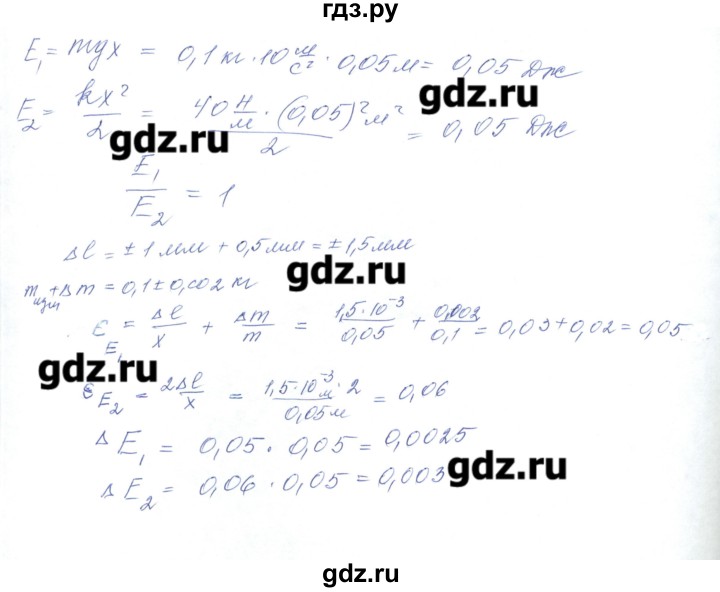 гдз.ру
E₁ = mgx = 0,1 кг · 10 м/с² · 0,05 м = 0,05 Дж
E₂ = kx²/2 = 40 Н/м · (0,05)² м² / 2 = 0,05 Дж
gdz.ru
gdz.ru
E₁/E₂ = 1
Δl = ± 1 мм + 0,5 мм = ± 1,5 мм
gdz.ru
m изм + Δm = 0,1 ± 0,002 кг
ε E₁ = Δl/x + Δm/m = 1,5·10⁻³/0,05 + 0,002/0,1 = 0,03 + 0,02 = 0,05
gdz.ru
ε E₂ = 2Δl/x = 1,5·10⁻³ м · 2 / 0,05 м = 0,06
Δ E₁ = 0,05 · 0,05 = 0,0025
Δ E₂ = 0,06 · 0,05 = 0,003
gdz.ru
gdz.ru